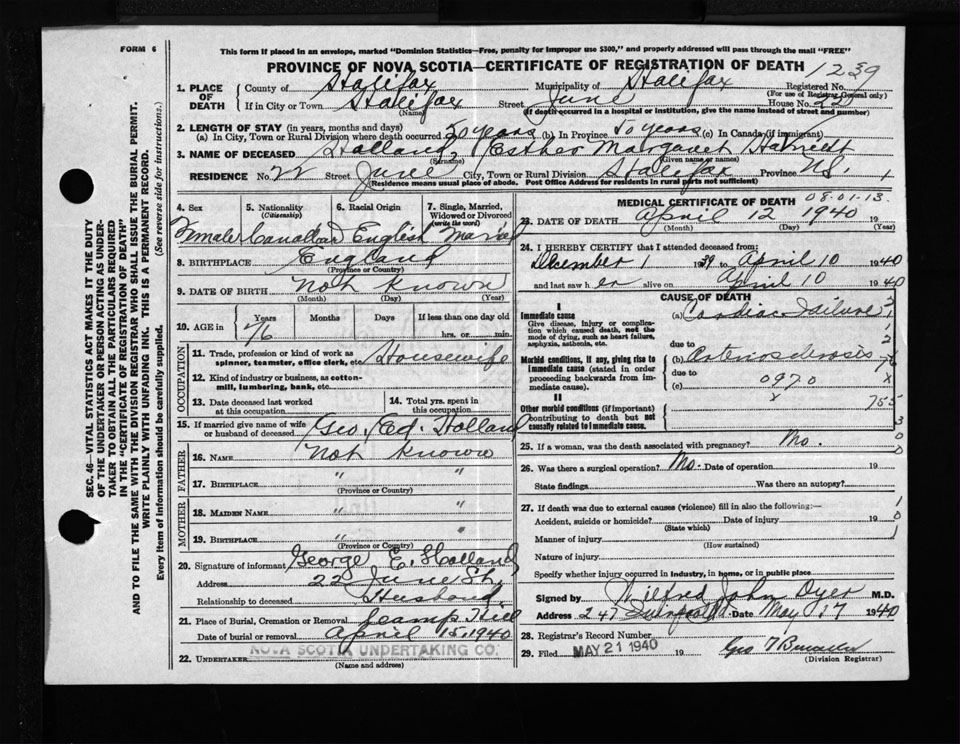 FORM 6
This form if placed in an envelope, marked "Dominion Statistics—Free, penalty for improper use $300," and properly addressed will pass through the mail "FREE"
PROVINCE OF NOVA SCOTIA—CERTIFICATE OF REGISTRATION OF DEATH
1239
SEC. 46—VITAL STATISTICS ACT MAKES IT THE DUTY
OF THE UNDERTAKER OR PERSON ACTING AS UNDER-
TAKER TO OBTAIN ALL THE PARTICULARS REQUIRED
IN THE "CERTIFICATE OF REGISTRATION OF DEATH"
AND TO FILE THE SAME WITH THE DIVISION REGISTRAR WHO SHALL ISSUE THE BURIAL PERMIT.
WRITE PLAINLY WITH UNFADING INK. THIS IS A PERMANENT RECORD.
Every item of information should be carefully supplied. (See reverse side for instructions.)
1. PLACE OF DEATH
County of Halifax Municipality of Halifax Registered No.
(For use of Registrar General only)
If in City or Town Halifax Street June House No. 22
(Name) (If death occurred in a hospital or institution, give the name instead of street and number)
2. LENGTH OF STAY (in years, months and days)
(a) In City, Town or Rural Division where death occurred 50 years (b) In Province 50 years (c) In Canada (if immigrant)
3. NAME OF DECEASED Holland Esther Margaret Harriett
(Surname) (Given name or names)
RESIDENCE No. 22 Street June City, Town or Rural Division Halifax Province N.S.
(Residence means usual place of abode. Post Office Address for residents in rural parts not sufficient)
4. Sex 5. Nationality (Citizenship) 6. Racial Origin 7. Single, Married, Widowed or Divorced (write the word)
Female Canadian English Married
8. BIRTHPLACE England
(Province or Country)
9. DATE OF BIRTH Not known
(Month) (Day) (Year)
10. AGE in Years Months Days If less than one day
76 hrs. or min.
OCCUPATION
11. Trade, profession or kind of work as spinner, teamster, office clerk, etc. Housewife
12. Kind of industry or business, as cotton-mill, lumbering, bank, etc.
13. Date deceased last worked at this occupation 14. Total yrs. spent in this occupation
15. If married give name of wife or husband of deceased Geo. Ed. Holland
FATHER
16. NAME Not known
17. BIRTHPLACE " "
(Province or Country)
MOTHER
18. MAIDEN NAME " "
19. BIRTHPLACE " "
(Province or Country)
20. Signature of informant George E. Holland
Address 22 June St.
Relationship to deceased Husband
21. Place of Burial, Cremation or Removal Camp Hill
Date of burial or removal April 15, 1940
22. UNDERTAKER NOVA SCOTIA UNDERTAKING CO.
(Name and address)
MEDICAL CERTIFICATE OF DEATH 08-01-13
23. DATE OF DEATH April 12 1940 19
(Month) (Day) (Year)
24. I HEREBY CERTIFY that I attended deceased from:
December 1 1939 to April 10 1940
and last saw her alive on April 10 1940
CAUSE OF DEATH
I
Immediate cause (a) Cardiac Failure
Give disease, injury or complication which caused death, not the mode of dying, such as heart failure, asphyxia, asthenia, etc.
due to
Morbid conditions, if any, giving rise to immediate cause (stated in order proceeding backwards from immediate cause).
(b) Arteriosclerosis
due to
(c) 0970 x
II
Other morbid conditions (if important) contributing to death but not causally related to immediate cause.
x 755
25. If a woman, was the death associated with pregnancy? No.
26. Was there a surgical operation? No. Date of operation 19
State findings Was there an autopsy?
27. If death was due to external causes (violence) fill in also the following:—
Accident, suicide or homicide? Date of injury 19
(State which)
Manner of injury
(How sustained)
Nature of injury
Specify whether injury occurred in industry, in home, or in public place
Signed by Wilfred John Dyer M.D.
Address 247 Date May 17 1940
28. Registrar's Record Number
29. Filed MAY 21 1940 19 Geo
(Division Registrar)